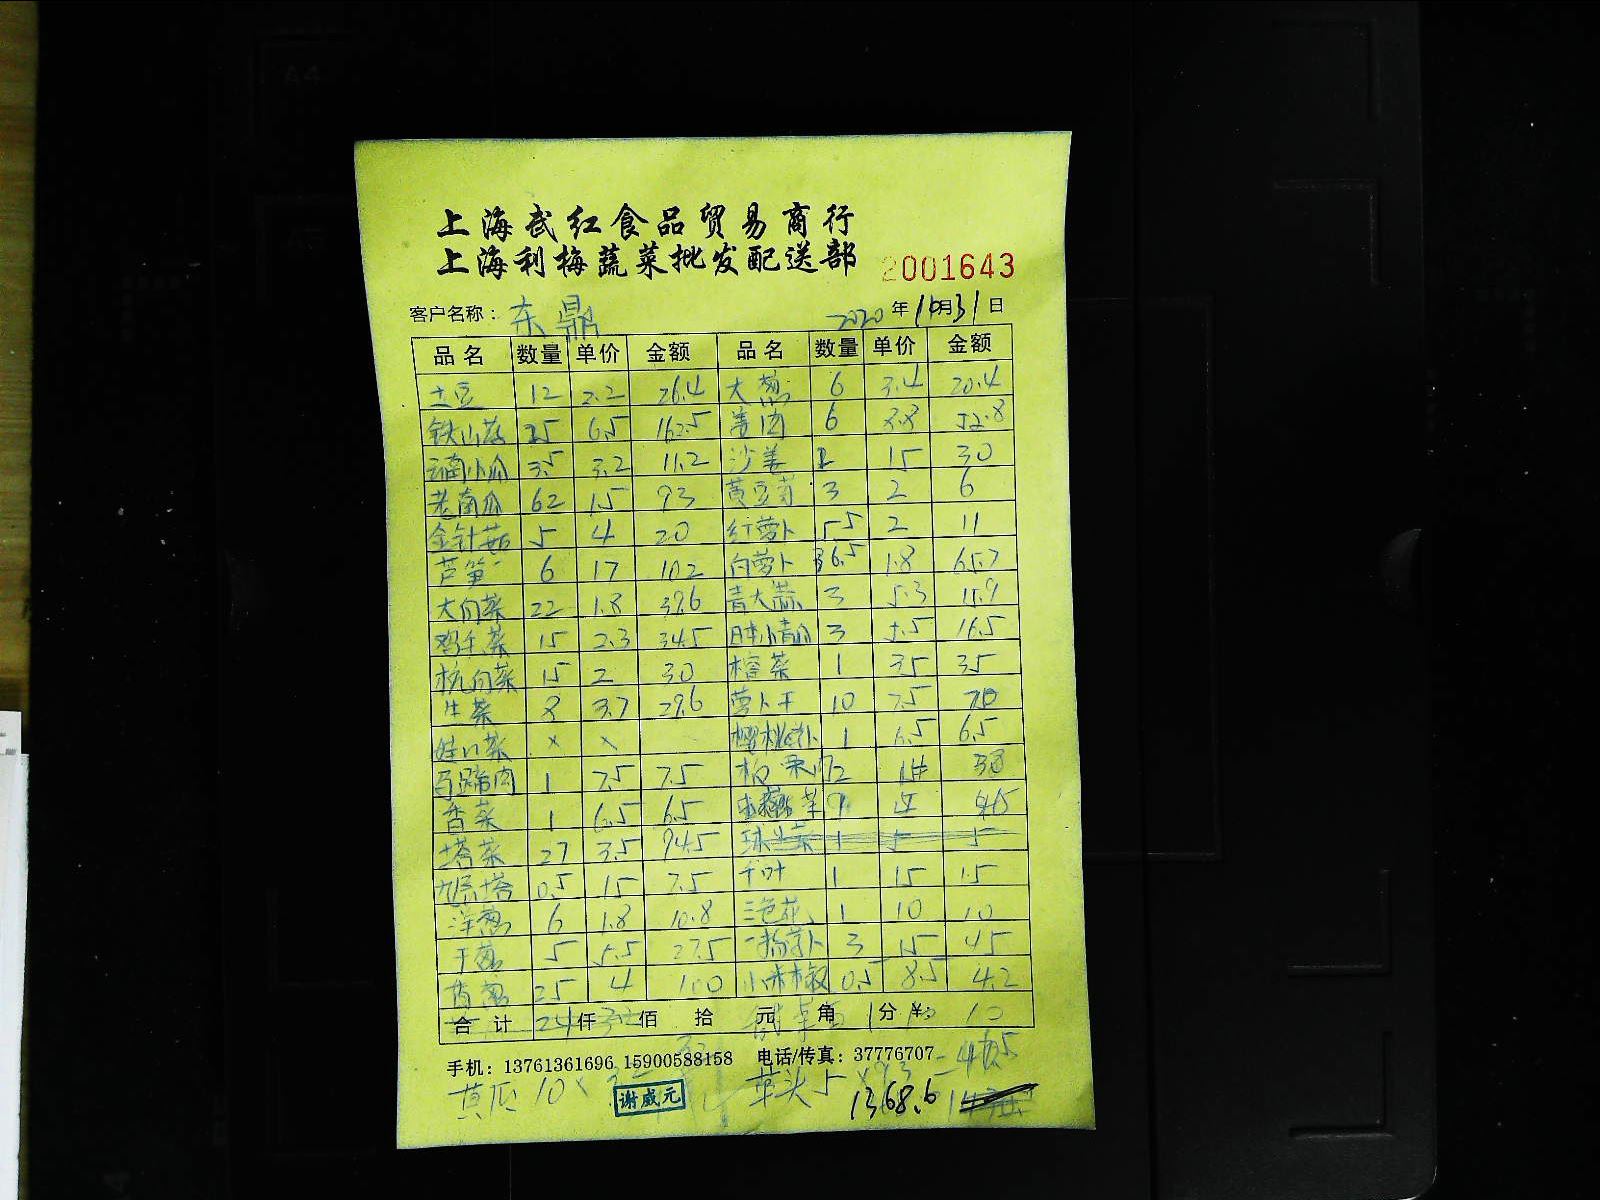 上海武红食品贸易商行
上海利梅蔬菜批发配送部
2001643
客户名称：东鼎 2020年10月31日
品名 数量 单价 金额 品名 数量 单价 金额
土豆 12 2.2 26.4 大葱 6 3.4 20.4
铁山药 25 6.5 162.5 6 8.8 52.8
云南小瓜 3.5 3.2 11.2 沙姜 2 15 30
老南瓜 62 1.5 93 黄豆芽 3 2 6
金针菇 5 4 20 红萝卜 5.5 2 11
芦笋 6 17 102 白萝卜 36.5 1.8 65.7
大白菜 22 1.8 39.6 青大蒜 3 5.3 15.9
鸡毛菜 15 2.3 34.5 日本小青瓜 3 5.5 16.5
杭白菜 15 2 30 榨菜 1 35 35
生菜 8 3.7 29.6 萝卜干 10 7.5
娃娃菜 × × 樱桃萝卜 1 6.5 6.5
马蹄肉 1 7.5 7.5 板栗肉 2
香菜 1 6.5 6.5 9
塔菜 27 3.5 94.5 球生菜 1 5 5
九层塔 0.5 15 7.5 千叶 1 15 15
洋葱 6 1.8 10.8 三色花 1 10 10
干葱 5 5.5 27.5 3 15 45
香葱 25 4 100 小米椒 0.5 8.5 4.2
合计 仟 佰 拾 元 角 分 ¥: 10
手机：13761361696 15900588158 电话/传真：37776707
黄瓜 10 × 草头 5
谢威元
1368.6